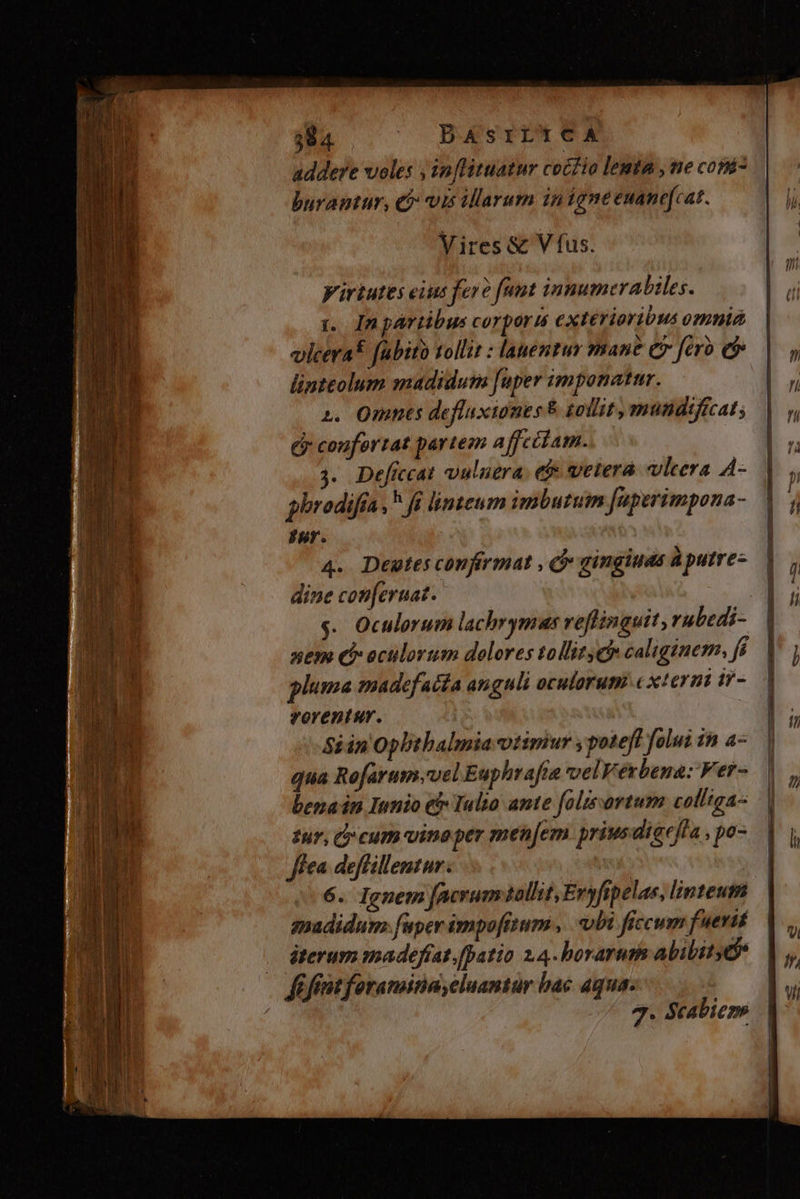 384 BASILICA
addere voles , inſtituatur coctio lenta , ne com-
burantur, & vis illarum in igne euaneſcat.
Vires & Vſus.
Virtutes eius ferè ſunt innumerabiles.
1. In partibus corporis exterioribus omnia
vlcera ᵍ ſubitò tollit : lauentur manè & ſerò &
linteolum madidum ſuper imponatur.
2. Omnes defluxiones ᵍ tollit, mundificat,
& confortat partem affectam.
3. Deſiccat vulnera & vetera vlcera A-
phrodiſia , ʰ ſi linteum imbutum ſuperimpona-
tur.
4. Dentes confirmat , & gingiuas à putre-
dine conſeruat.
5. Oculorum lachrymas reſtinguit, rubedi-
nem & oculorum dolores tollit, & caliginem, ſi
pluma madefacta anguli oculorum externi ir-
rorentur.
Si in Ophthalmia vtimur , poteſt ſolui in a-
qua Roſarum, vel Euphraſia vel Verbena: Ver-
bena in Iunio & Iulio ante ſolis ortum colliga-
tur, & cum vino per menſem prius digeſta , po-
ſtea deſtillentur.
6. Ignem ſacrum tollit, Eryſipelas, linteum
madidum ſuper impoſitum , vbi ſiccum fuerit
iterum madefiat, ſpatio 24. horarum abibit, &
ſi ſint foramina, eluantur hac aqua.
7. Scabiem